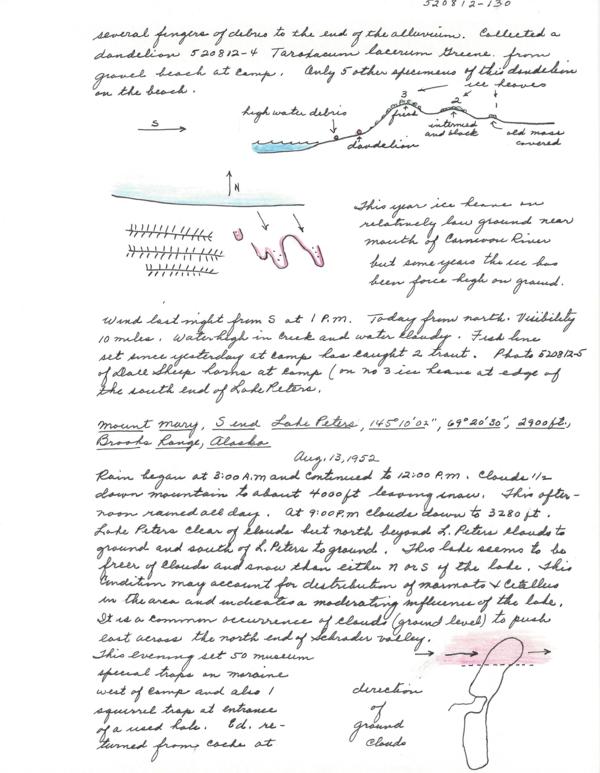 520812-130
several fingers of debris to the end of the alluvium. Collected a
dandelion 520812-4 Taraxacum lacerum Greene. from
gravel beach at camp. Only 5 other specimens of this dandelion
on the beach.
ice heaves
3
2
high water debris
fresh
intermed
and black
old moss
covered
S
dandelion
N
This year ice heave on
relatively low ground near
mouth of Carnevon River
but some years the ice has
been force high on ground.
Wind last night from S at 1 P.M. Today from north. Visibility
10 miles. Water high in creek and water cloudy. Fish line
set since yesterday at camp has caught 2 trout. Photo 520812-5
of Dall Sheep horns at camp (on no 3 ice heave at edge of
the south end of Lake Peters.
Mount Mary, S end Lake Peters, 145°10'02", 69°20'30", 2900 ft.,
Brooks Range, Alaska
Aug. 13, 1952
Rain began at 3:00 A.M and continued to 12:00 P.M. Clouds 1/2
down mountain to about 4000 ft leaving snow. This after-
noon rained all day. At 9:00 P.M clouds down to 3280 ft.
Lake Peters clear of clouds but north beyond L. Peters clouds to
ground and south of L. Peters to ground. This lake seems to be
freer of clouds and snow than either N or S of the lake. This
condition may account for distribution of marmots & Citellus
in the area and indicates a moderating influence of the lake.
It is a common occurrence of clouds (ground level) to push
east across the north end of Schrader valley.
This evening set 50 museum
special traps on moraine
west of camp and also 1
squirrel trap at entrance
of a used hole. Ed. re-
turned from cache at
direction
of
ground
clouds